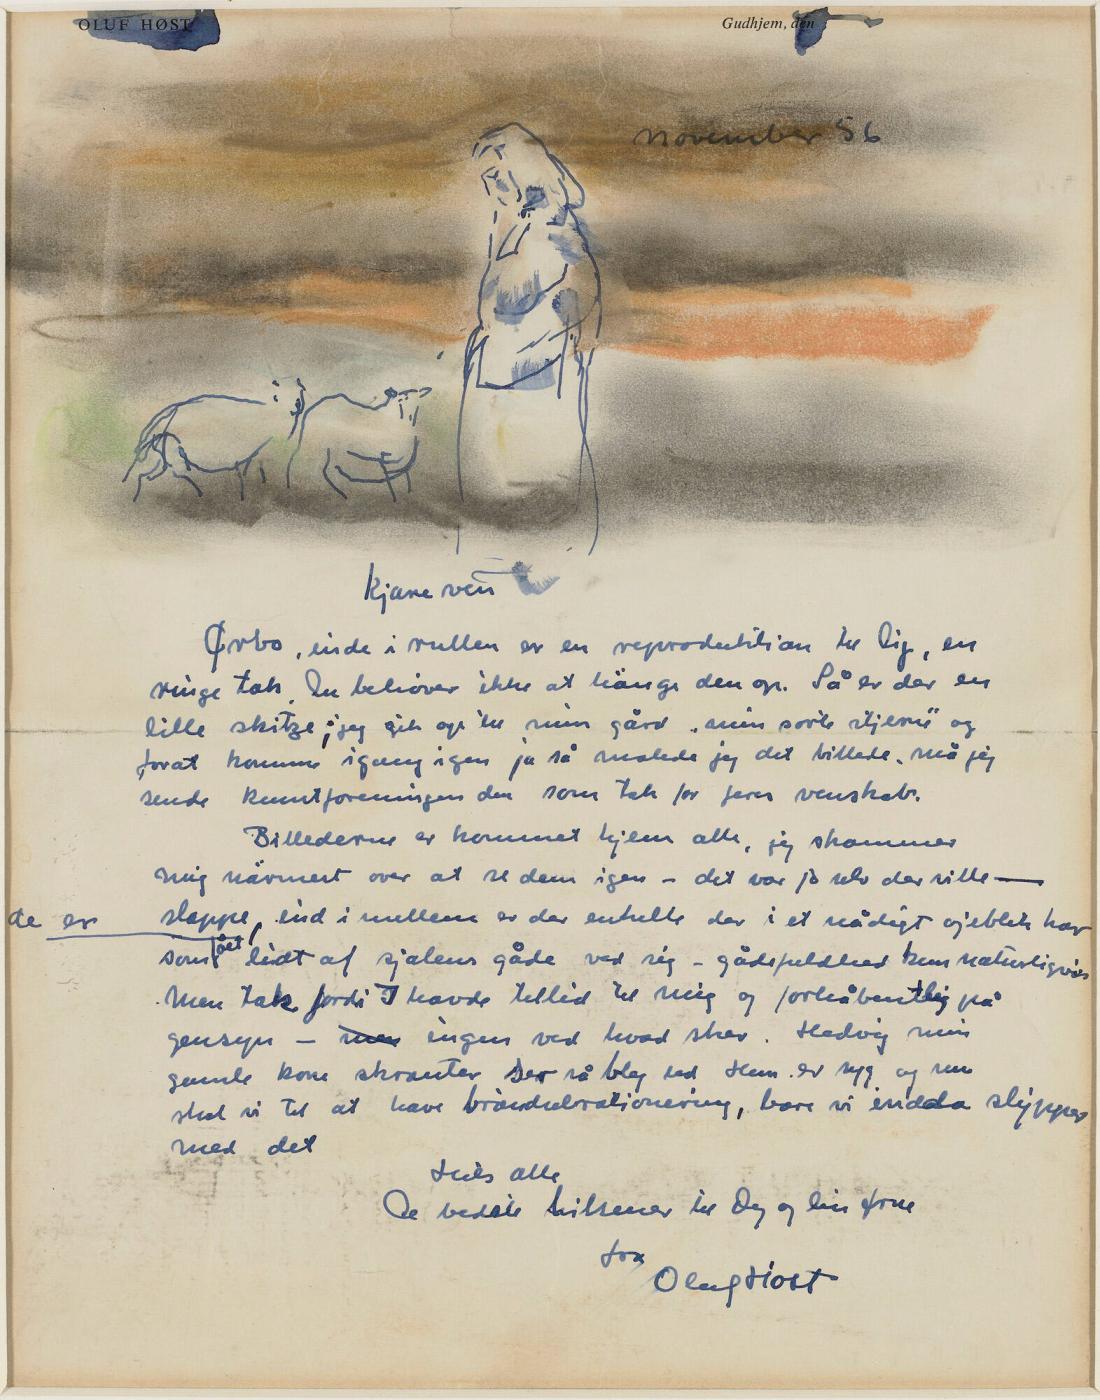 OLUF HØST
Gudhjem, den
november 56
Kjære ven
Ørbo, inde i rullen er en reproduktion til Dig, en
ringe tak. Du behøver ikke at hänge den op. Så er der en
lille skitze; jeg gik op til min gård "min sorte stjerne" og
forat komme igang igen ja så malede jeg det billede. må jeg
sende kunstforeningen den som tak for jeres venskab.
Billederne er kommet hjem alle, jeg skammer
mig närmest over at se dem igen – det var jo selv der ville —
de er sløppe, ind i mellem er der enkelte der i et nådigt øjeblik har
som fået lidt af sjælens gåde ved sig – gådefuldhed kun naturligvis
Men tak fordi I havde tillid til mig og forhåbentlig på
gensyn – men ingen ved hvad sker. Hedvig min
gamle kone skranter så bleg ud Hun er syg og nu
skal vi til at have brændselsrationering, bare vi endda slipper
med det
Hils alle
De bedste hilsener til Dig og din frue
fra
Oluf Høst